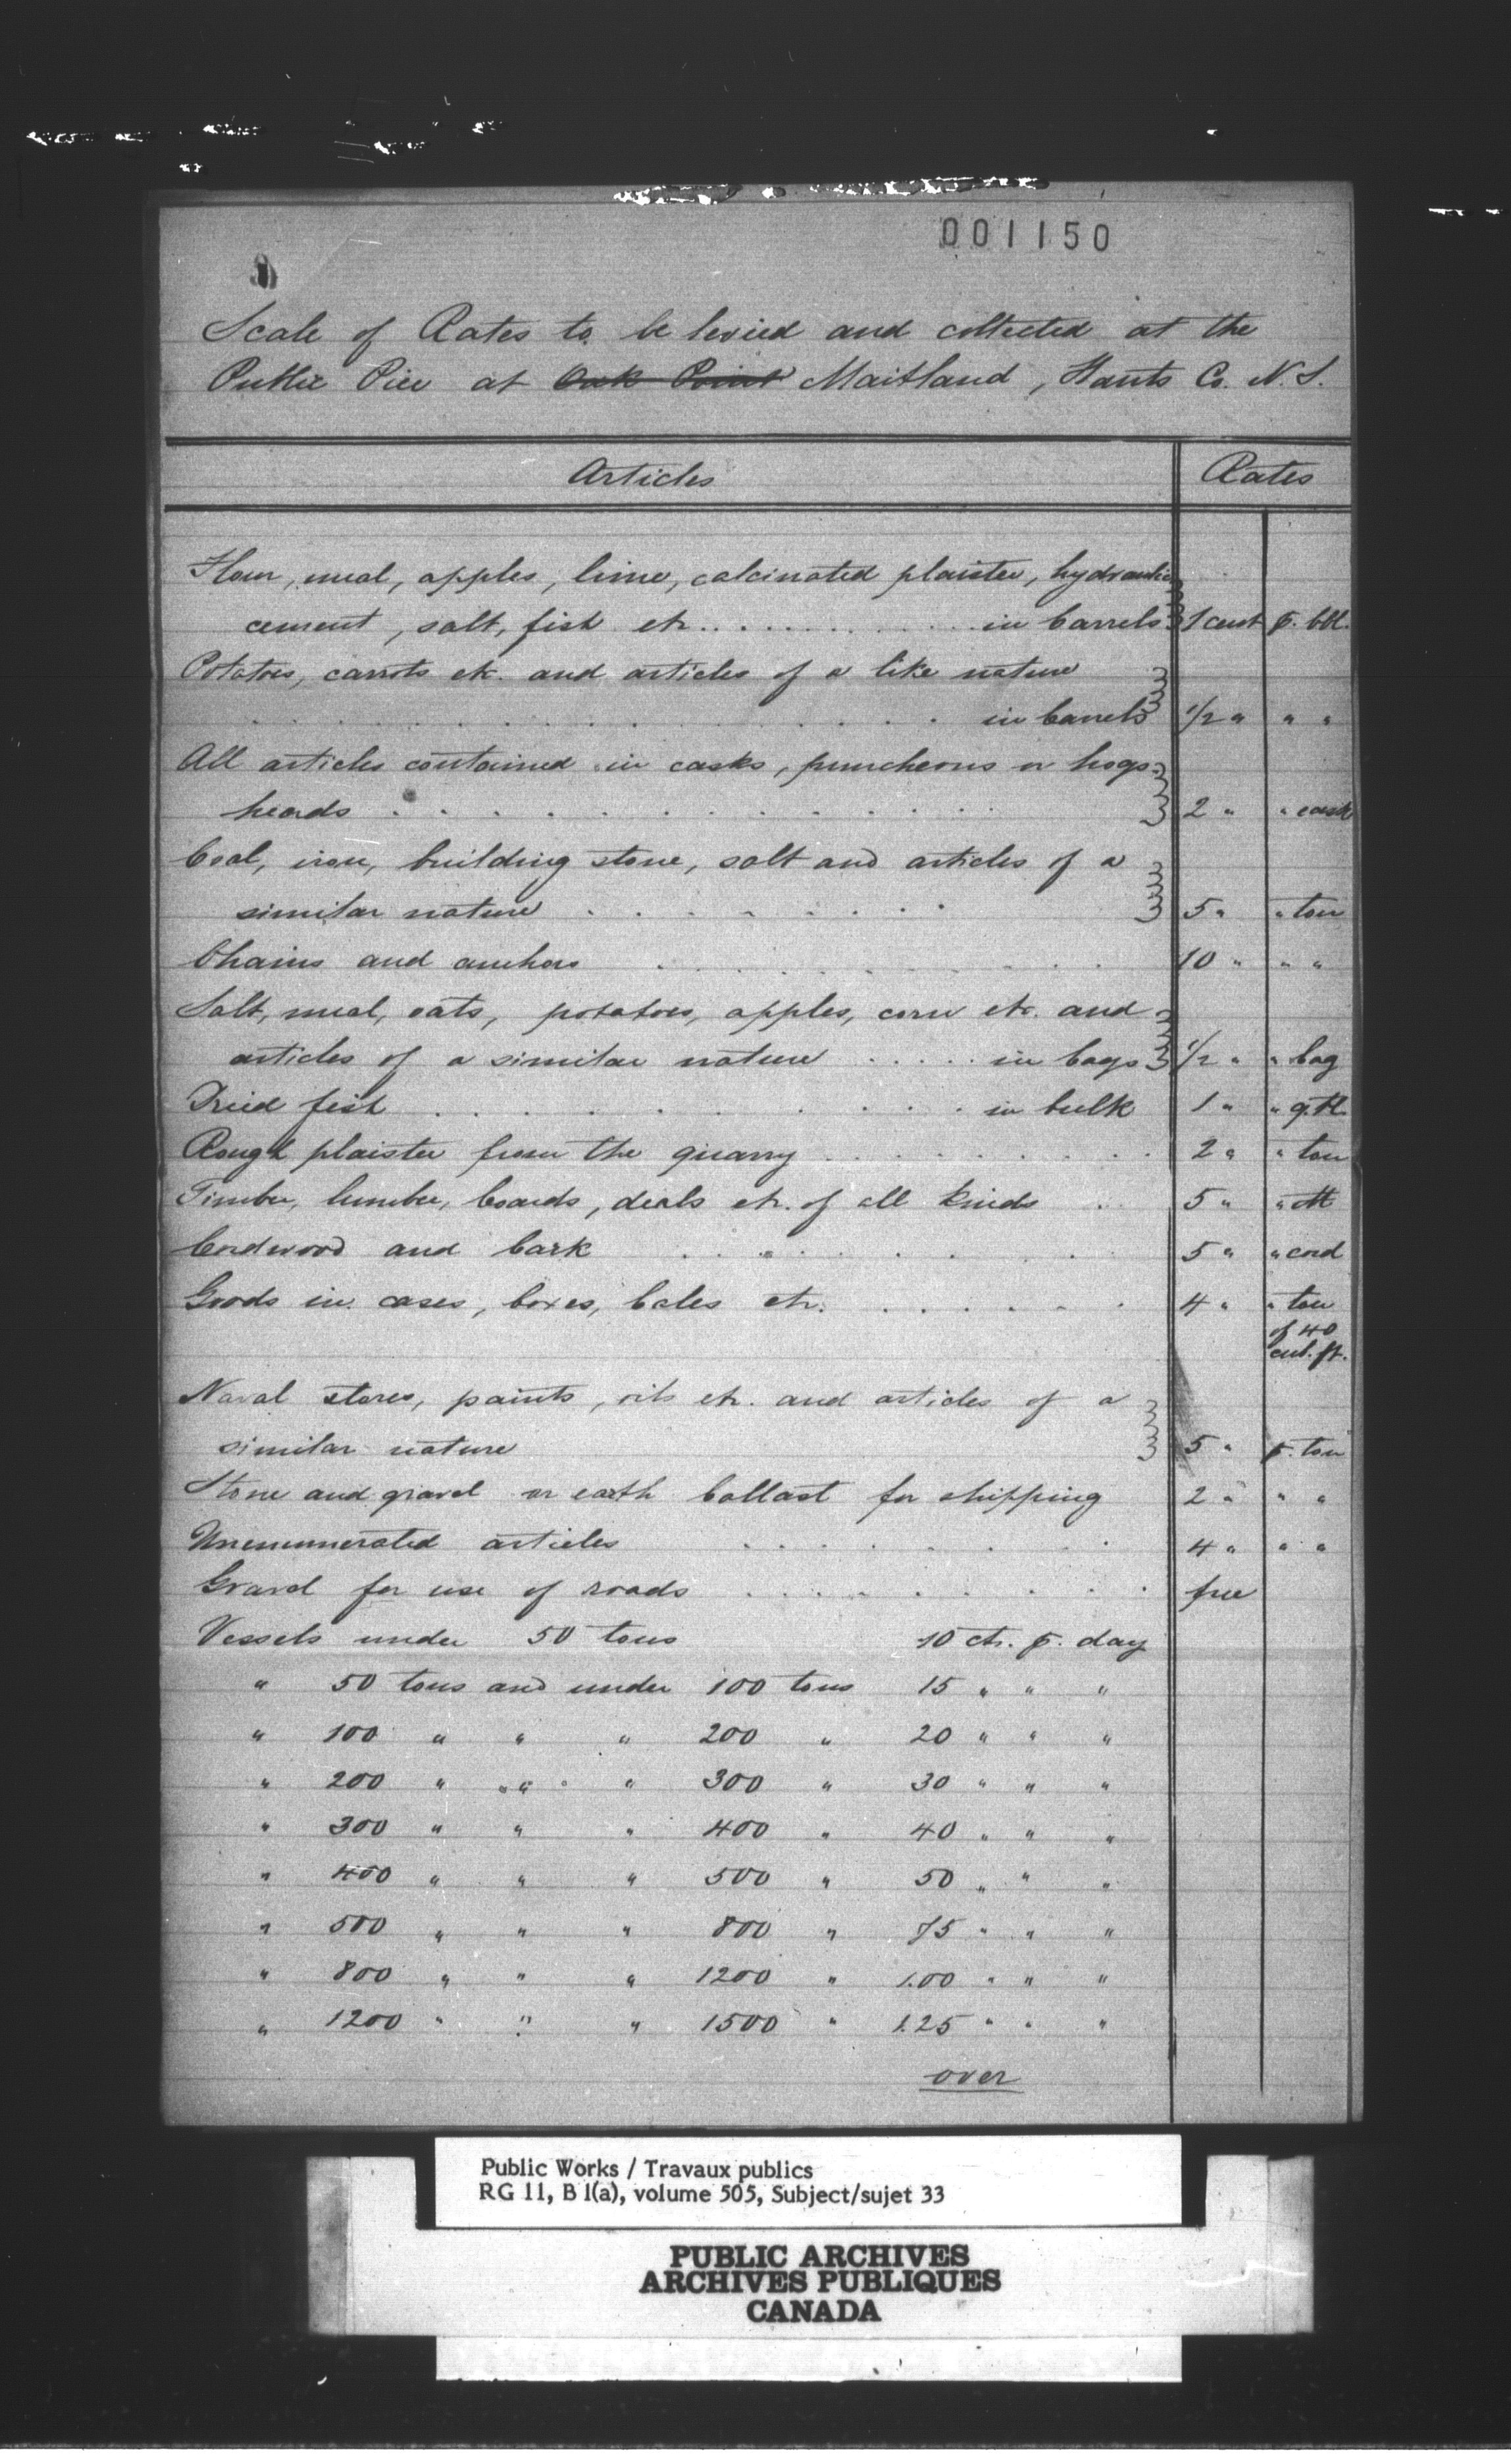 001150
Scale of Rates to be levied and collected at the
Public Pier at Oak Point Maitland, Hants Co. N.S.
Articles Rates
Flour, meal, apples, lime, calcinated plaister, hydraulic
cement, salt, fish etc. . . . . . . . . . in barrels 1 cent p. bbl.
Potatoes, carrots etc. and articles of a like nature
. . . . . . . . . . . . . in barrels 1/2 " " "
All articles contained in casks, puncheons or hogs-
heads . . . . . . . . . . . 2 " " cask
Coal, iron, building stone, salt and articles of a
similar nature . . . . . . . . 5 " " ton
Chains and anchors . . . . . . . . . 10 " " "
Salt, meal, oats, potatoes, apples, corn etc. and
articles of a similar nature . . . . . in bags 1/2 " " bag
Dried fish . . . . . . . . . . in bulk 1 " " qtl.
Rough plaister from the quarry . . . . . . . . . 2 " " ton
Timber, lumber, boards, deals etc. of all kinds . . 5 " " M
Cordwood and bark . . . . . . . 5 " " cord
Goods in cases, boxes, bales etc. . . . . . . 4 " " ton
of 40
cub. ft.
Naval stores, paints, oils etc. and articles of a
similar nature 5 " p. ton
Stone and gravel or earth ballast for shipping 2 " " "
Unenumerated articles . . . . . . . 4 " " "
Gravel for use of roads . . . . . . . . free
Vessels under 50 tons 10 cts. p. day
" 50 tons and under 100 tons 15 " " "
" 100 " " " 200 " 20 " " "
" 200 " " " 300 " 30 " " "
" 300 " " " 400 " 40 " " "
" 400 " " " 500 " 50 " " "
" 500 " " " 800 " 75 " " "
" 800 " " " 1200 " 1.00 " " "
" 1200 " " " 1500 " 1.25 " " "
over
Public Works / Travaux publics
RG 11, B 1(a), volume 505, Subject/sujet 33
PUBLIC ARCHIVES
ARCHIVES PUBLIQUES
CANADA